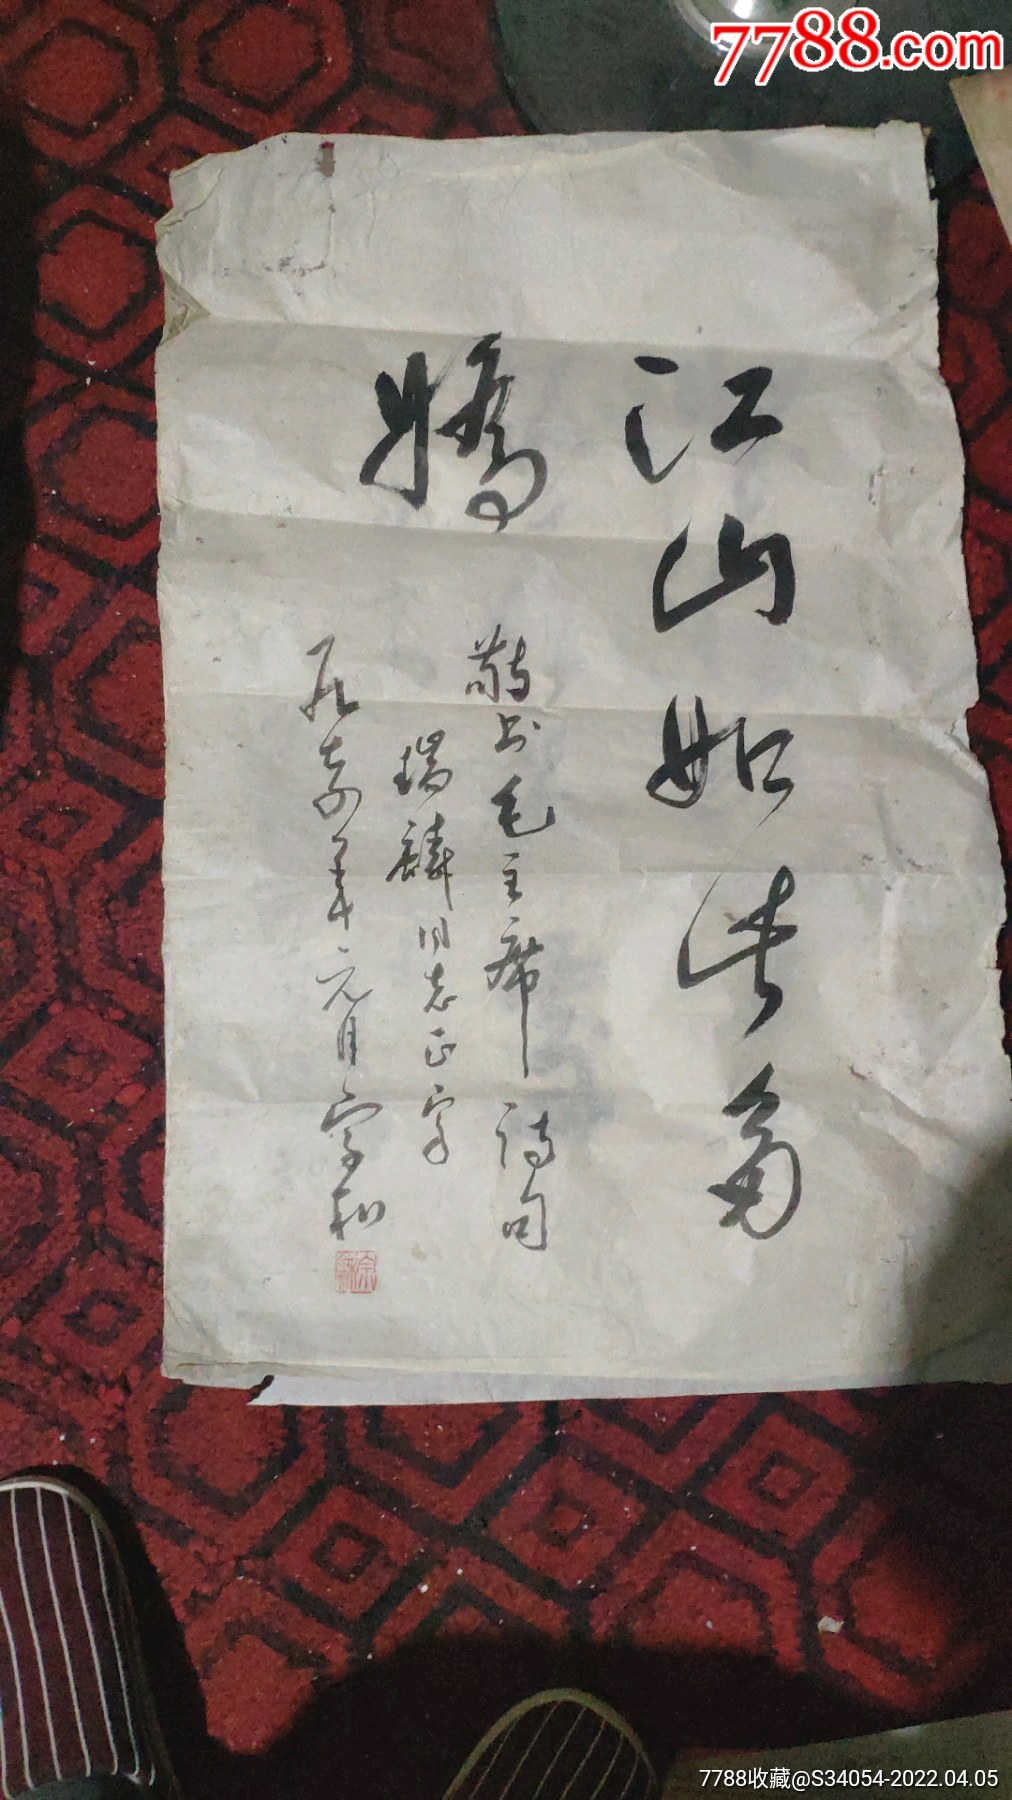 7788.com
江山如此多
娇
敬书毛主席诗句
瑞麟同志正字
年元月宗和
7788收藏@S34054-2022.04.05